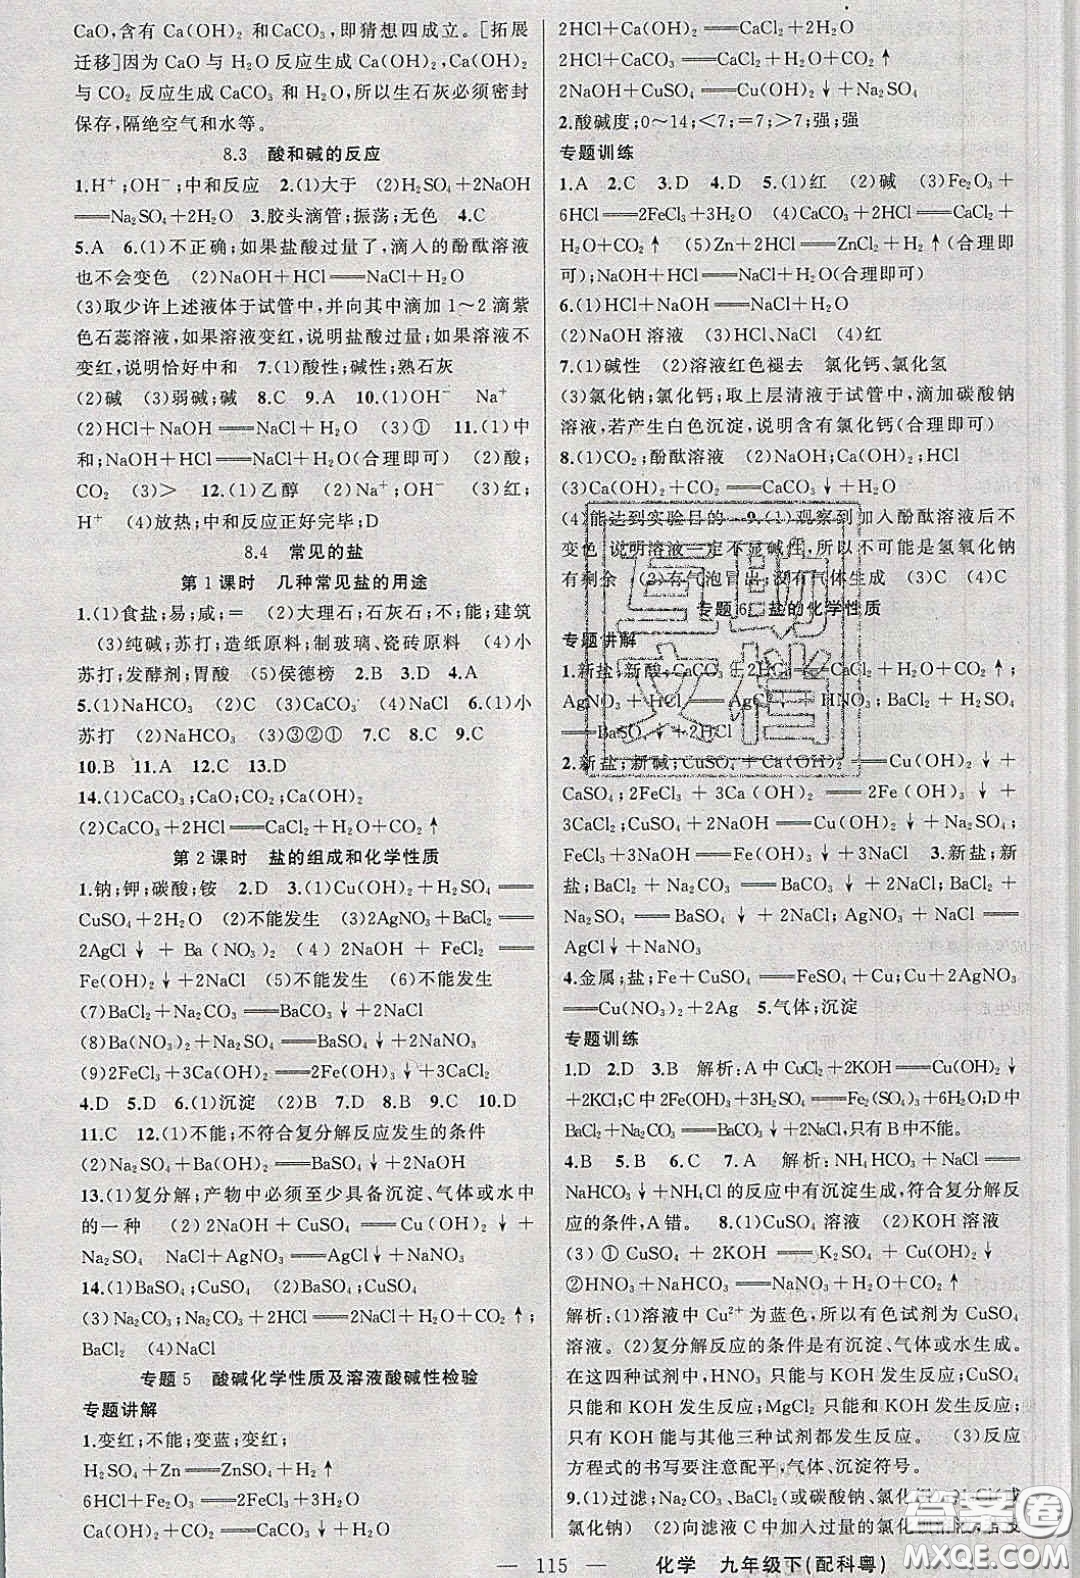 CaO,含有 Ca(OH)₂ 和CaCO₃,即猜想四成立。[拓展
迁移]因为 CaO 与 H₂O 反应生成 Ca(OH)₂,Ca(OH)₂
与 CO₂ 反应生成 CaCO₃ 和 H₂O,所以生石灰必须密封
保存,隔绝空气和水等。
8.3 酸和碱的反应
1.H⁺;OH⁻;中和反应 2.(1)大于 (2)H₂SO₄+2NaOH
══Na₂SO₄+2H₂O 3.胶头滴管;振荡;无色 4.C
5.A 6.(1)不正确;如果盐酸过量了,滴入的酚酞溶液
也不会变色 (2)NaOH+HCl══NaCl+H₂O
(3)取少许上述液体于试管中,并向其中滴加 1~2 滴紫
色石蕊溶液,如果溶液变红,说明盐酸过量;如果溶液不
变红,说明恰好中和 7.(1)酸性;碱性;熟石灰
(2)碱 (3)弱碱;碱 8.C 9.A 10.(1)OH⁻ Na⁺
(2)HCl+NaOH══NaCl+H₂O (3)① 11.(1)中
和;NaOH+HCl══NaCl+H₂O(合理即可) (2)酸;
CO₂ (3)> 12.(1)乙醇 (2)Na⁺;OH⁻ (3)红;
H⁺ (4)放热;中和反应正好完毕;D
8.4 常见的盐
第 1 课时 几种常见盐的用途
1.(1)食盐;易;咸;= (2)大理石;石灰石;不;能;建筑
(3)纯碱;苏打;造纸原料;制玻璃、瓷砖原料 (4)小
苏打;发酵剂;胃酸 (5)侯德榜 2.B 3.D 4.A
5.(1)NaHCO₃ (2)C (3)CaCO₃ (4)NaCl 6.(1)小
苏打 (2)NaHCO₃ (3)③②① 7.C 8.C 9.C
10.B 11.A 12.C 13.D
14.(1)CaCO₃;CaO;CO₂;Ca(OH)₂
(2)CaCO₃+2HCl══CaCl₂+H₂O+CO₂↑
第 2 课时 盐的组成和化学性质
1.钠;钾;碳酸;铵 2.D 3.(1)Cu(OH)₂+H₂SO₄══
CuSO₄+2H₂O (2)不能发生 (3)2AgNO₃+BaCl₂══
2AgCl↓+Ba(NO₃)₂ (4)2NaOH+FeCl₂══
Fe(OH)₂↓+2NaCl (5)不能发生 (6)不能发生
(7)BaCl₂+Na₂CO₃══BaCO₃↓+2NaCl
(8)Ba(NO₃)₂+Na₂SO₄══BaSO₄↓+2NaNO₃
(9)2FeCl₃+3Ca(OH)₂══2Fe(OH)₃↓+3CaCl₂
4.D 5.D 6.(1)沉淀 (2)B 7.D 8.B 9.C 10.D
11.C 12.(1)不能;不符合复分解反应发生的条件
(2)Na₂SO₄+Ba(OH)₂══BaSO₄↓+2NaOH
13.(1)复分解;产物中必须至少具备沉淀、气体或水中
的一种 (2)2NaOH+CuSO₄══Cu(OH)₂↓+
Na₂SO₄ NaCl+AgNO₃══AgCl↓+NaNO₃
14.(1)BaSO₄;CuSO₄ (2)BaSO₄;CuSO₄
(3)Na₂CO₃+2HCl══2NaCl+H₂O+CO₂↑;
BaCl₂ (4)NaCl
专题 5 酸碱化学性质及溶液酸碱性检验
专题讲解
1.变红;不能;变蓝;变红;
H₂SO₄+Zn══ZnSO₄+H₂↑
6HCl+Fe₂O₃══2FeCl₃+3H₂O
Ca(OH)₂+CO₂══CaCO₃↓+H₂O
2HCl+Ca(OH)₂══CaCl₂+2H₂O
2HCl+CaCO₃══CaCl₂+H₂O+CO₂↑
2NaOH+CuSO₄══Cu(OH)₂↓+Na₂SO₄
2.酸碱度;0~14;<7;=7;>7;强;强
专题训练
1.A 2.C 3.D 4.D 5.(1)红 (2)碱 (3)Fe₂O₃+
6HCl══2FeCl₃+3H₂O (4)CaCO₃+2HCl══CaCl₂+
H₂O+CO₂↑ (5)Zn+2HCl══ZnCl₂+H₂↑(合理即
可);盐酸和硝酸银反应(合理即可)
6.(1)HCl+NaOH══NaCl+H₂O
(2)NaOH 溶液 (3)HCl、NaCl (4)红
7.(1)碱性 (2)溶液红色褪去 氯化钙、氯化氢
(3)氯化钠;氯化钙;取上层清液于试管中,滴加碳酸钠
溶液,若产生白色沉淀,说明含有氯化钙(合理即可)
8.(1)CO₂;酚酞溶液 (2)NaOH;Ca(OH)₂;HCl
(3)Ca(OH)₂+CO₂══CaCO₃↓+H₂O
(4)能达到实验目的 9.(1)观察到加入酚酞溶液后不
变色 说明溶液一定不显碱性,所以不可能是氢氧化钠
有剩余 (2)有气泡冒出;没有气体生成 (3)C (4)C
专题 6 盐的化学性质
专题讲解
1.新盐;新酸;CaCO₃+2HCl══CaCl₂+H₂O+CO₂↑;
AgNO₃+HCl══AgCl↓+HNO₃;BaCl₂+H₂SO₄
══BaSO₄↓+2HCl
2.新盐;新碱;CuSO₄+Ca(OH)₂══Cu(OH)₂↓+
CaSO₄;2FeCl₃+3Ca(OH)₂══2Fe(OH)₃↓+
3CaCl₂;CuSO₄+2NaOH══Cu(OH)₂↓+Na₂SO₄;
FeCl₃+3NaOH══Fe(OH)₃↓+3NaCl 3.新盐;新
盐;BaCl₂+Na₂CO₃══BaCO₃↓+2NaCl;BaCl₂+
Na₂SO₄══BaSO₄↓+2NaCl;AgNO₃+NaCl══
AgCl↓+NaNO₃
4.金属;盐;Fe+CuSO₄══FeSO₄+Cu;Cu+2AgNO₃
══Cu(NO₃)₂+2Ag 5.气体;沉淀
专题训练
1.D 2.D 3.B 解析:A中CuCl₂+2KOH══Cu(OH)₂↓
+2KCl;C 中 2Fe(OH)₃+3H₂SO₄══Fe₂(SO₄)₃+6H₂O;D 中
BaCl₂+Na₂SO₄══BaSO₄↓+2NaCl,只有 B 中不能。
4.B 5.B 6.C 7.A 解析:NH₄HCO₃+NaCl══
NaHCO₃↓+NH₄Cl 的反应中有沉淀生成,符合复分解反
应的条件,A 错。 8.(1)CuSO₄ 溶液 (2)KOH 溶液
(3)①CuSO₄+2KOH══K₂SO₄+Cu(OH)₂↓
②HNO₃+NaHCO₃══NaNO₃+H₂O+CO₂↑
解析:(1)溶液中 Cu²⁺ 为蓝色,所以有色试剂为 CuSO₄
溶液。(2)复分解反应的条件是有沉淀、气体或水生成。
在这四种试剂中,只有 KOH 能与其他三种反应,CuSO₄
只能和 KOH 发生反应;MgCl₂ 只能和 KOH 发生反应,
只有 KOH 能与其他三种试剂都发生反应。 (3)反应
方程式的书写要注意配平,气体、沉淀符号。
9.(1)过滤;Na₂CO₃、BaCl₂(或碳酸钠、氯化钡)
氯化钠) (2)向滤液 C 中加入过量的氯化
— 115 — 化学 九年级下(配科粤)
互助
文档
答案圈
MXQE.COM